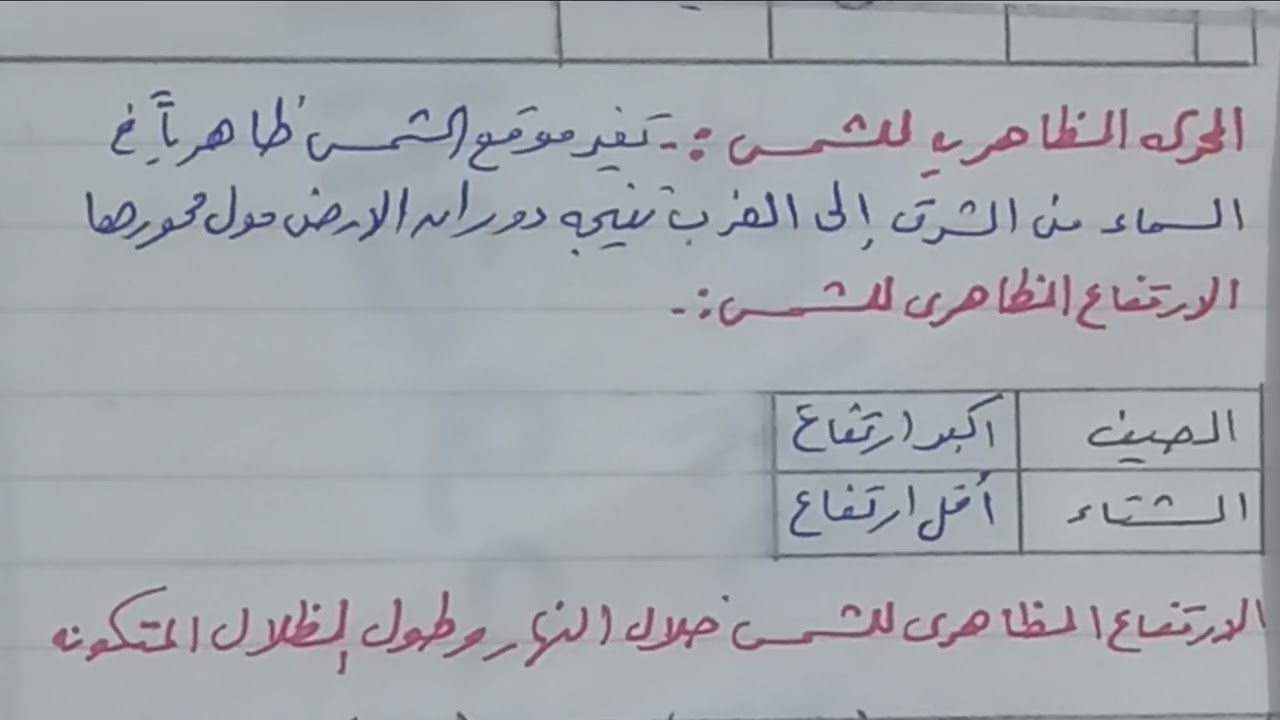 الحركه الظاهريه للشمس :- تغير موقع الشمس ظاهرياً في
السماء من الشرق إلى الغرب نتيجه دوران الارض حول محورها
الارتفاع الظاهرى للشمس :-
الصيف اكبر ارتفاع
الشتاء أقل ارتفاع
الارتفاع الظاهرى للشمس خلال النهار وطول الظلال المتكونه